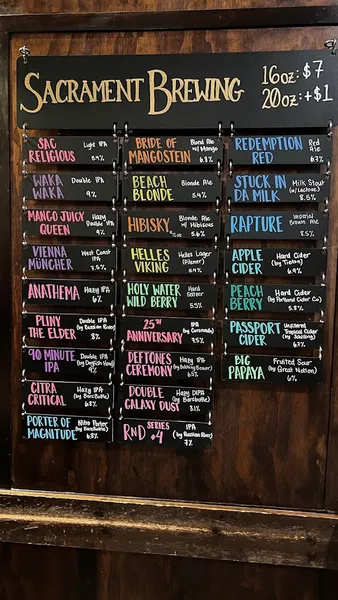 SACRAMENT BREWING
16oz: $7
20oz: +$1
SAC RELIGIOUS
Light IPA
WAKA WAKA
Double IPA
9%
MANGO JUICY QUEEN
Hazy Double IPA
9%
VIENNA MÜNCHER
West Coast IPA
7.5%
ANATHEMA
Hazy IPA
6%
PLINY THE ELDER
Double IPA
(by Russian River)
8%
90 MINUTE IPA
Double IPA
9%
CITRA CRITICAL
Hazy IPA
(by Barebottle)
6.8%
PORTER OF MAGNITUDE
Nitro Porter
(by Barebottle)
6.8%
BRIDE OF MANGOSTEIN
Blond Ale
w/ Mango
6.8%
BEACH BLONDE
Blonde Ale
5.4%
HIBISKY
Blonde Ale
w/ Hibiscus
5.6%
HELLES VIKING
Helles Lager
(Pilsner)
HOLY WATER WILD BERRY
Hard Seltzer
5.5%
25TH ANNIVERSARY
IPA
7.5%
DEFTONES CEREMONY
Hazy IPA
(by Belching Beaver)
6.5%
DOUBLE GALAXY DUST
Hazy DIPA
(by Barebottle)
8.1%
RND SERIES #4
IPA
(by Russian River)
7%
REDEMPTION RED
Red Ale
6.7%
STUCK IN DA MILK
Milk Stout
(w/ Lactose)
RAPTURE
Imperial Brown Ale
8.5%
APPLE CIDER
Hard Cider
(by Tieton)
6.9%
PEACH BERRY
Hard Cider
(by Portland Cider Co)
5.8%
PASSPORT CIDER
Tropical Cider
BIG PAPAYA
Fruited Sour
(by Great Notion)
6%